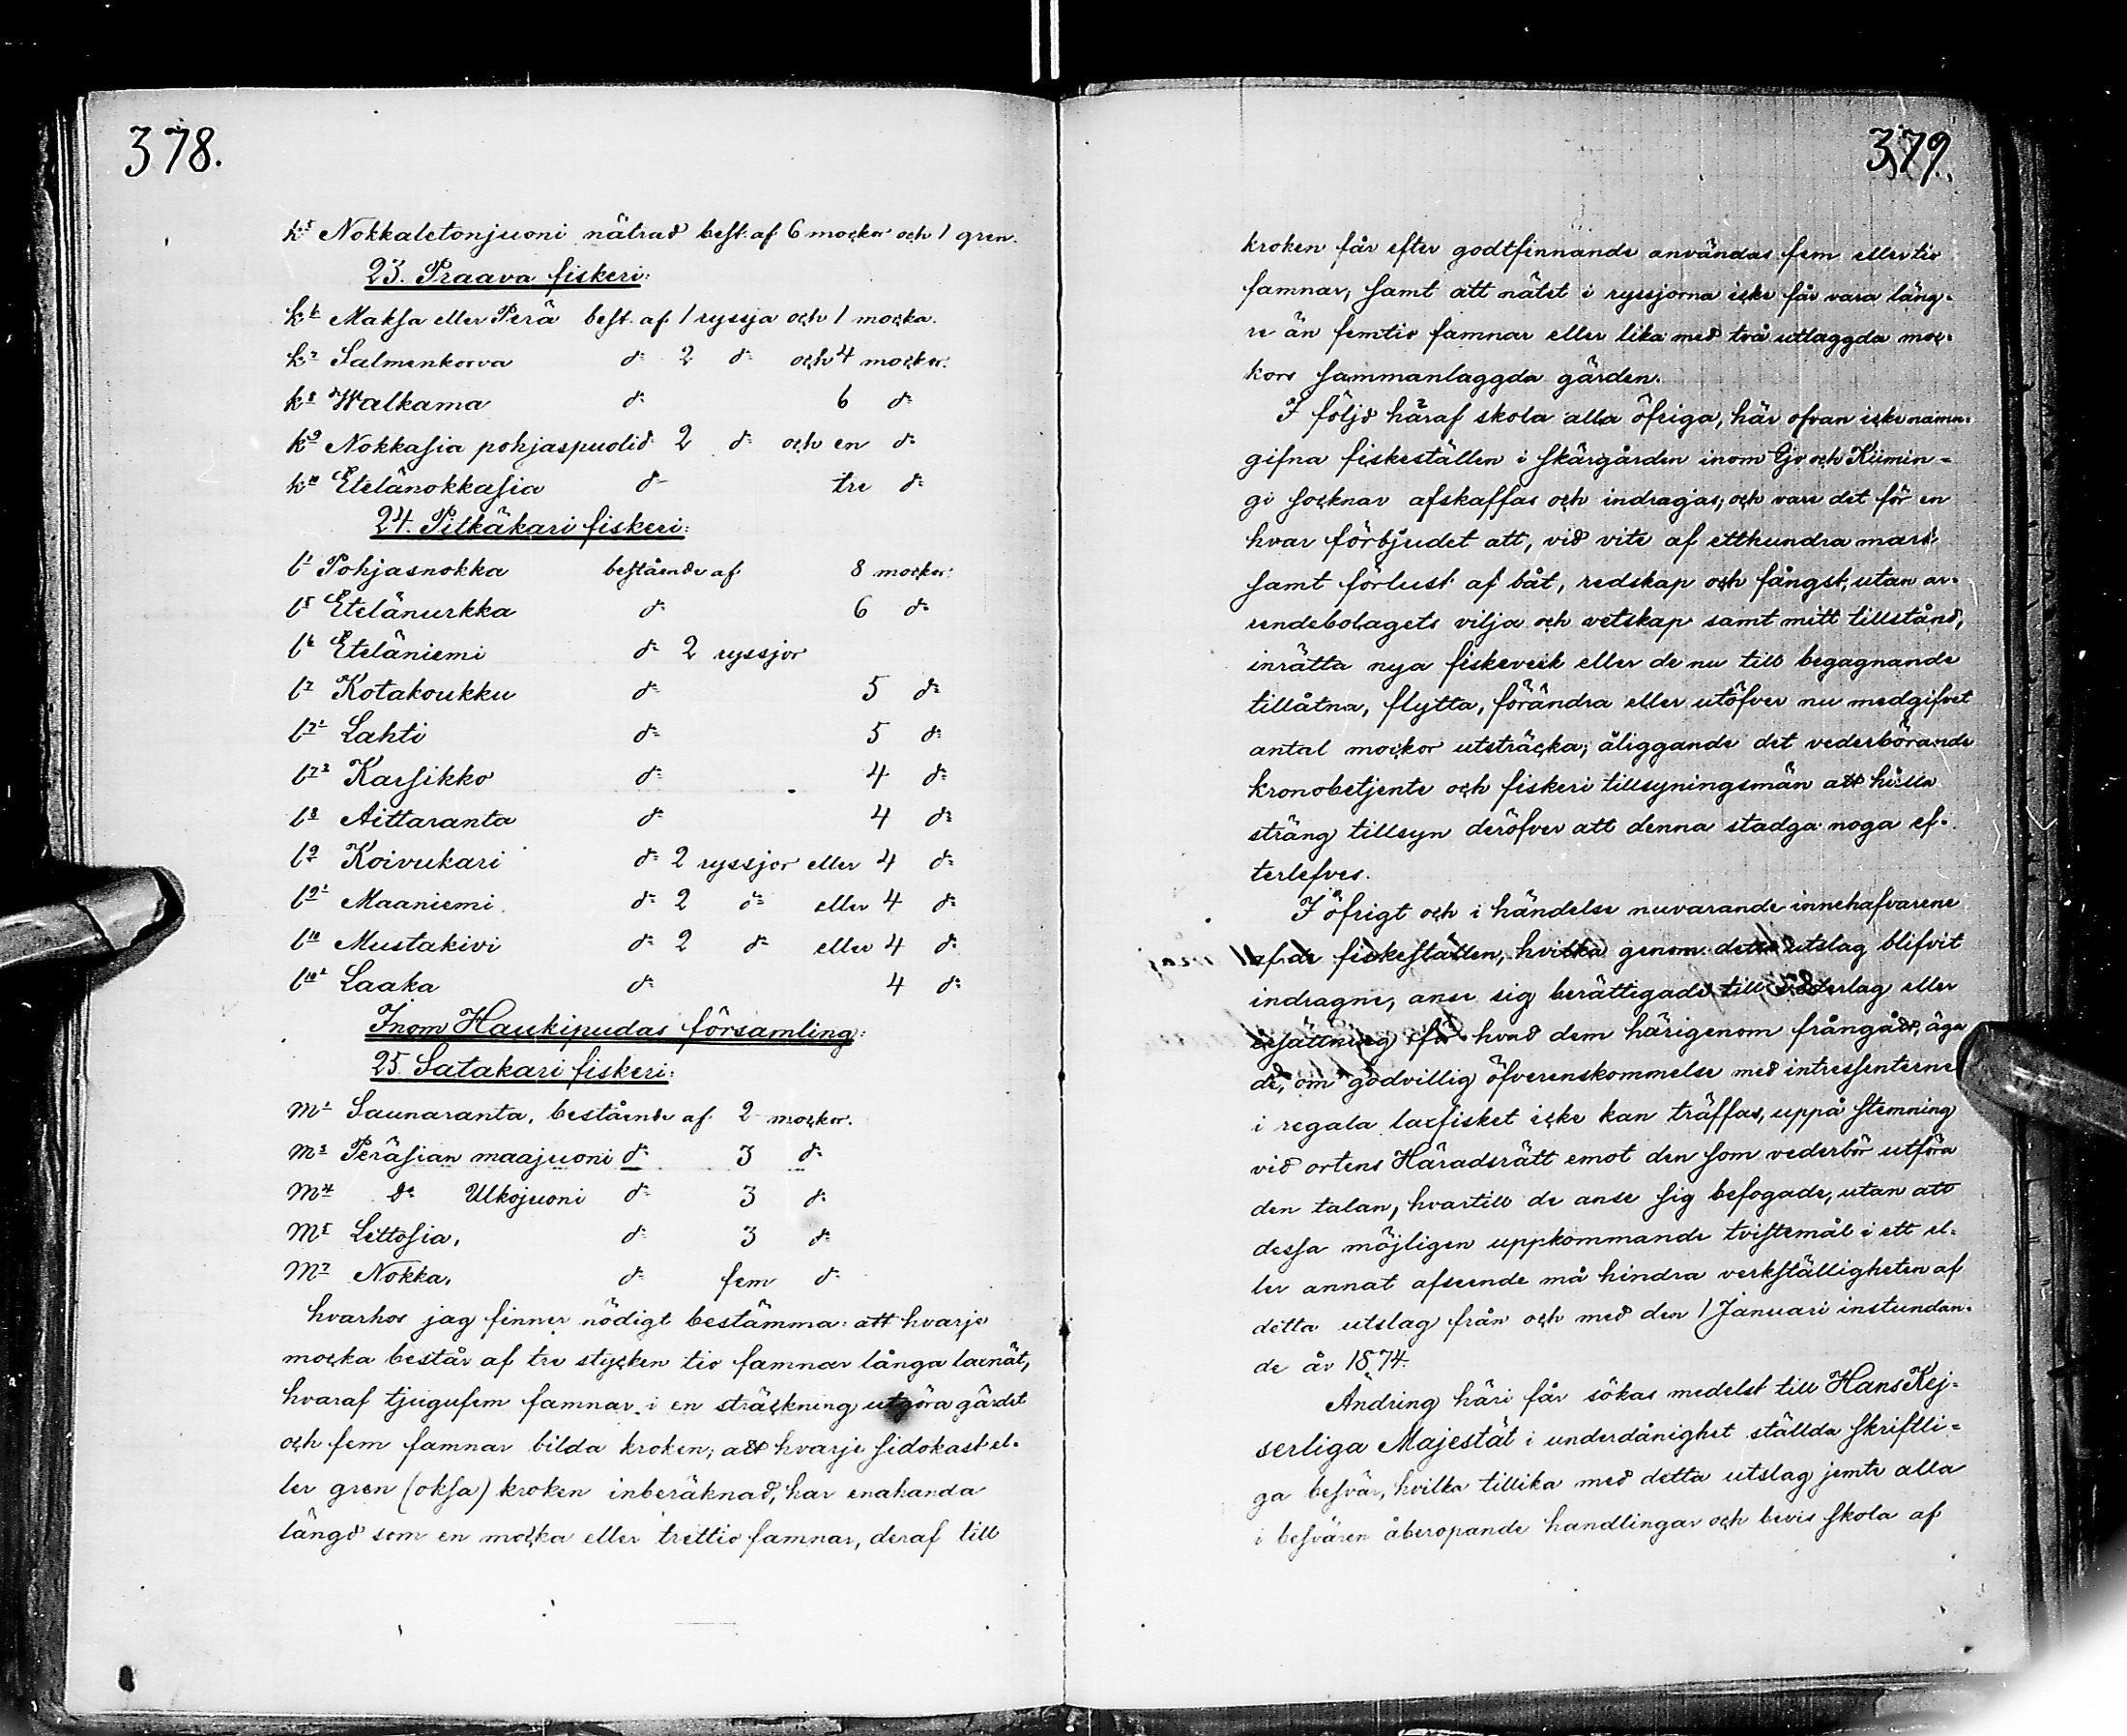 378.
k5 Nokkaletonjuoni nätrad best. af 6 mockor och 1 gren.
23. Praava fiskeri:
k6 Maksa eller Perä best. af 1 ryssja och 1 mocka.
k7 Salmenkorva d:o 2 d:o och 4 mockor.
k8 Walkama d:o 6 d:o
k9 Nokkasia pohjaspuolid 2 d:o och en d:o
k10 Etelänokkasia d:o tre d:o
24. Pitkäkari fiskeri:
l1 Pohjasnokka bestående af 8 mockor.
l5 Etelänurkka d:o 6 d:o
l6 Eteläniemi d:o 2 ryssjor
l7 Kotakoukku d:o 5 d:o
l71 Lahti d:o 5 d:o
l72 Karsikko d:o 4 d:o
l8 Aittaranta d:o 4 d:o
l9 Koivukari d:o 2 ryssjor eller 4 d:o
l91 Maaniemi d:o 2 d:o eller 4 d:o
l10 Mustakivi d:o 2 d:o eller 4 d:o
l101 Laaka d:o 4 d:o
Inom Haukipudas församling:
25. Satakari fiskeri:
m1 Saunaranta, bestående af 2 mockor.
m3 Peräsian maajuoni d:o 3 d:o
m4 d:o Ulkojuoni d:o 3 d:o
m5 Lettosia, d:o 3 d:o
m7 Nokka, d:o fem d:o
hvarhos jag finner nödigt bestämma: att hvarje
mocka består af tre stycken tio famnar långa laxnät,
hvaraf tjugufem famnar i en sträckning utgöra gärdet
och fem famnar bilda kroken; att hvarje sidokast el-
ler gren (oksa) kroken inberäknad, har enahanda
längd som en mocka eller trettio famnar, deraf till
379.
kroken får efter godtfinnande användas fem eller tio
famnar, samt att nätet i ryssjorna icke får vara läng-
re än femtio famnar eller lika med två utlaggda moc-
kors sammanlaggda gärden.
I följd häraf skola alla öfriga, här ofvan icke namn-
gifna fiskeställen i skärgården inom Ijo och Kiimin-
gi socknar afskaffas och indragas; och vare det för en
hvar förbjudet att, vid vite af etthundra mark
samt förlust af båt, redskap och fångst, utan ar-
rendebolagets vilja och vetskap samt mitt tillstånd,
inrätta nya fiskeverk eller de nu till begagnande
tillåtna, flytta, förändra eller utöfver nu medgifvet
antal mockor utsträcka; åliggande det vederbörande
kronobetjente och fiskeri tillsyningsmän att hålla
sträng tillsyn deröfver att denna stadga noga ef-
terlefves.
I öfrigt och i händelse nuvarande innehafvarene
af de fiskeställen, hvilka genom detta utslag blifvit
indragne, anse sig berättigade till vederlag eller
ersättning för hvad dem härigenom frångått, äga
de, om godvillig öfverenskommelse med intressenterne
i regala laxfisket icke kan träffas, uppå stemning
vid ortens Häradsrätt emot den som vederbör utföra
den talan, hvartill de anse sig befogade, utan att
dessa möjligen uppkommande tvistemål i ett el-
ler annat afseende må hindra verkställigheten af
detta utslag från och med den 1 Januari instundan-
de år 1874.
Ändring häri får sökas medelst till Hans Kej-
serliga Majestät i underdånighet ställda skriftli-
ga besvär, hvilka tillika med detta utslag jemte alla
i besvären åberopande handlingar och bevis skola af